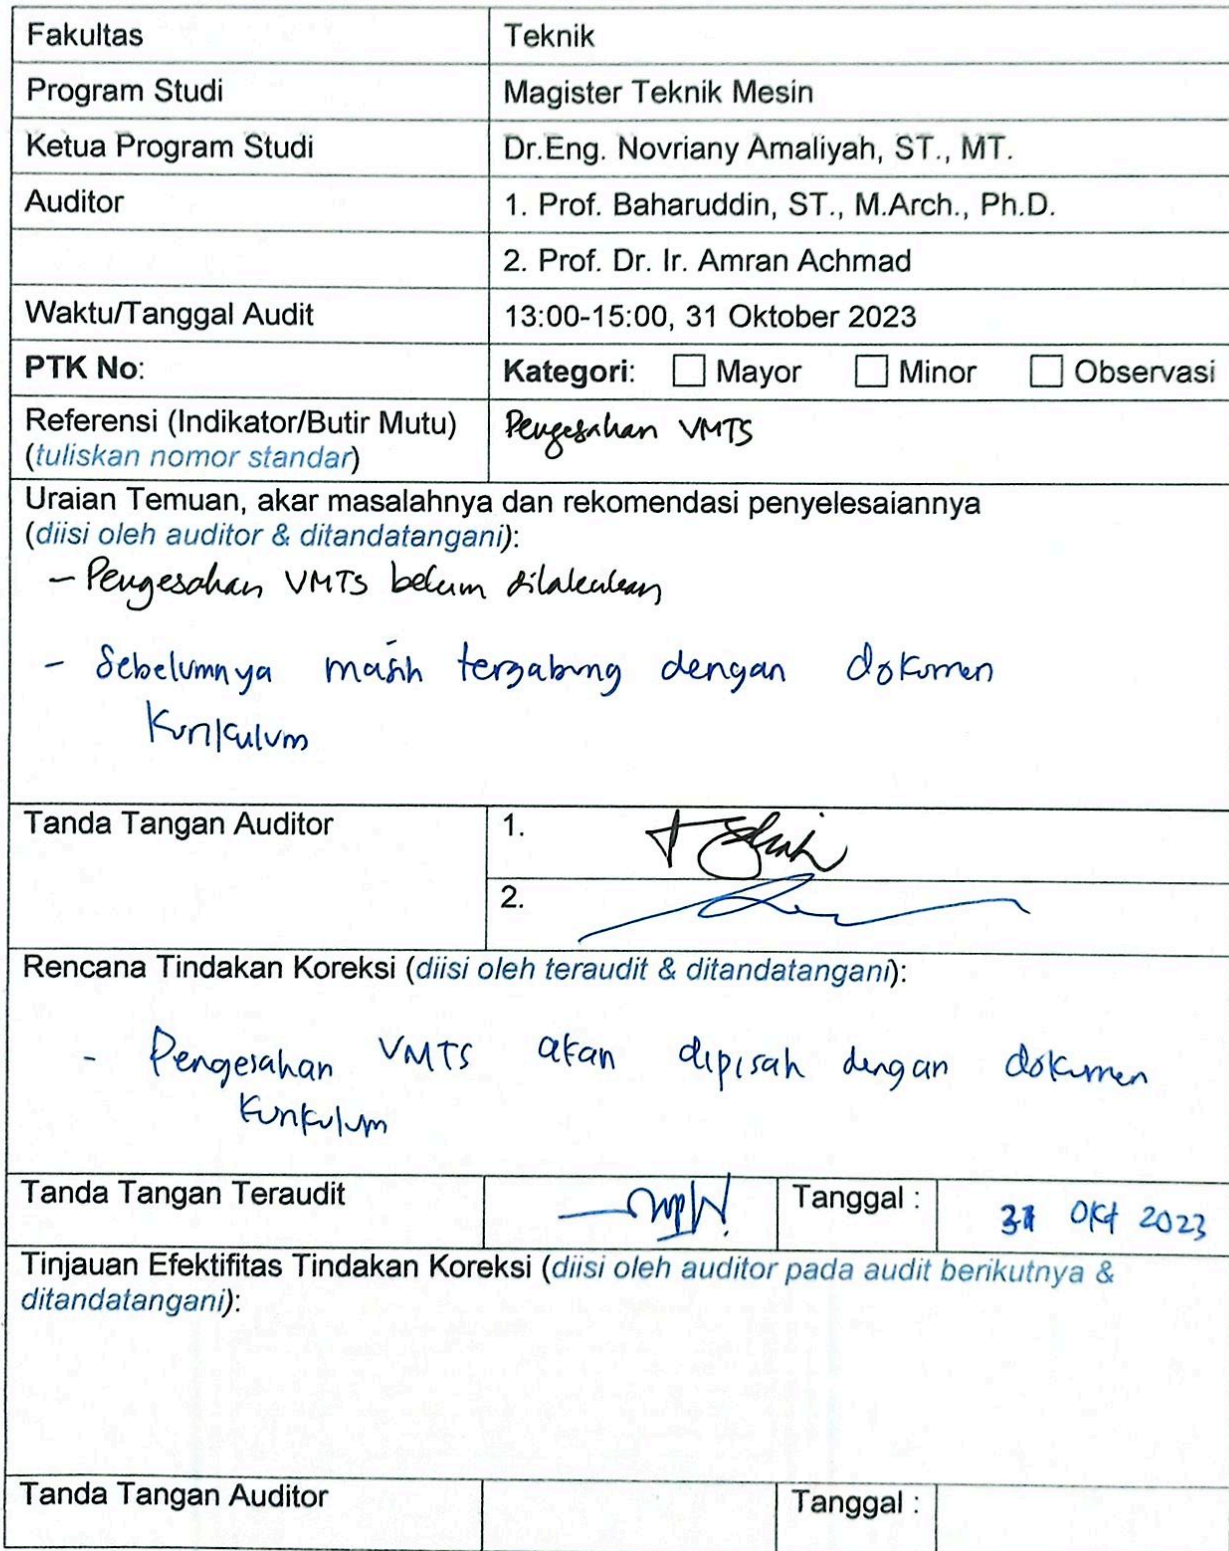 Fakultas Teknik
Program Studi Magister Teknik Mesin
Ketua Program Studi Dr.Eng. Novriany Amaliyah, ST., MT.
Auditor 1. Prof. Baharuddin, ST., M.Arch., Ph.D.
2. Prof. Dr. Ir. Amran Achmad
Waktu/Tanggal Audit 13:00-15:00, 31 Oktober 2023
PTK No: Kategori: ☐ Mayor ☐ Minor ☐ Observasi
Referensi (Indikator/Butir Mutu) Pengesahan VMTS
(tuliskan nomor standar)
Uraian Temuan, akar masalahnya dan rekomendasi penyelesaiannya
(diisi oleh auditor & ditandatangani):
- Pengesahan VMTS belum dilakukan
- Sebelumnya masih tergabung dengan dokumen
Kurikulum
Tanda Tangan Auditor 1.
2.
Rencana Tindakan Koreksi (diisi oleh teraudit & ditandatangani):
- Pengesahan VMTS akan dipisah dengan dokumen
kurikulum
Tanda Tangan Teraudit Tanggal : 31 Okt 2023
Tinjauan Efektifitas Tindakan Koreksi (diisi oleh auditor pada audit berikutnya &
ditandatangani):
Tanda Tangan Auditor Tanggal :